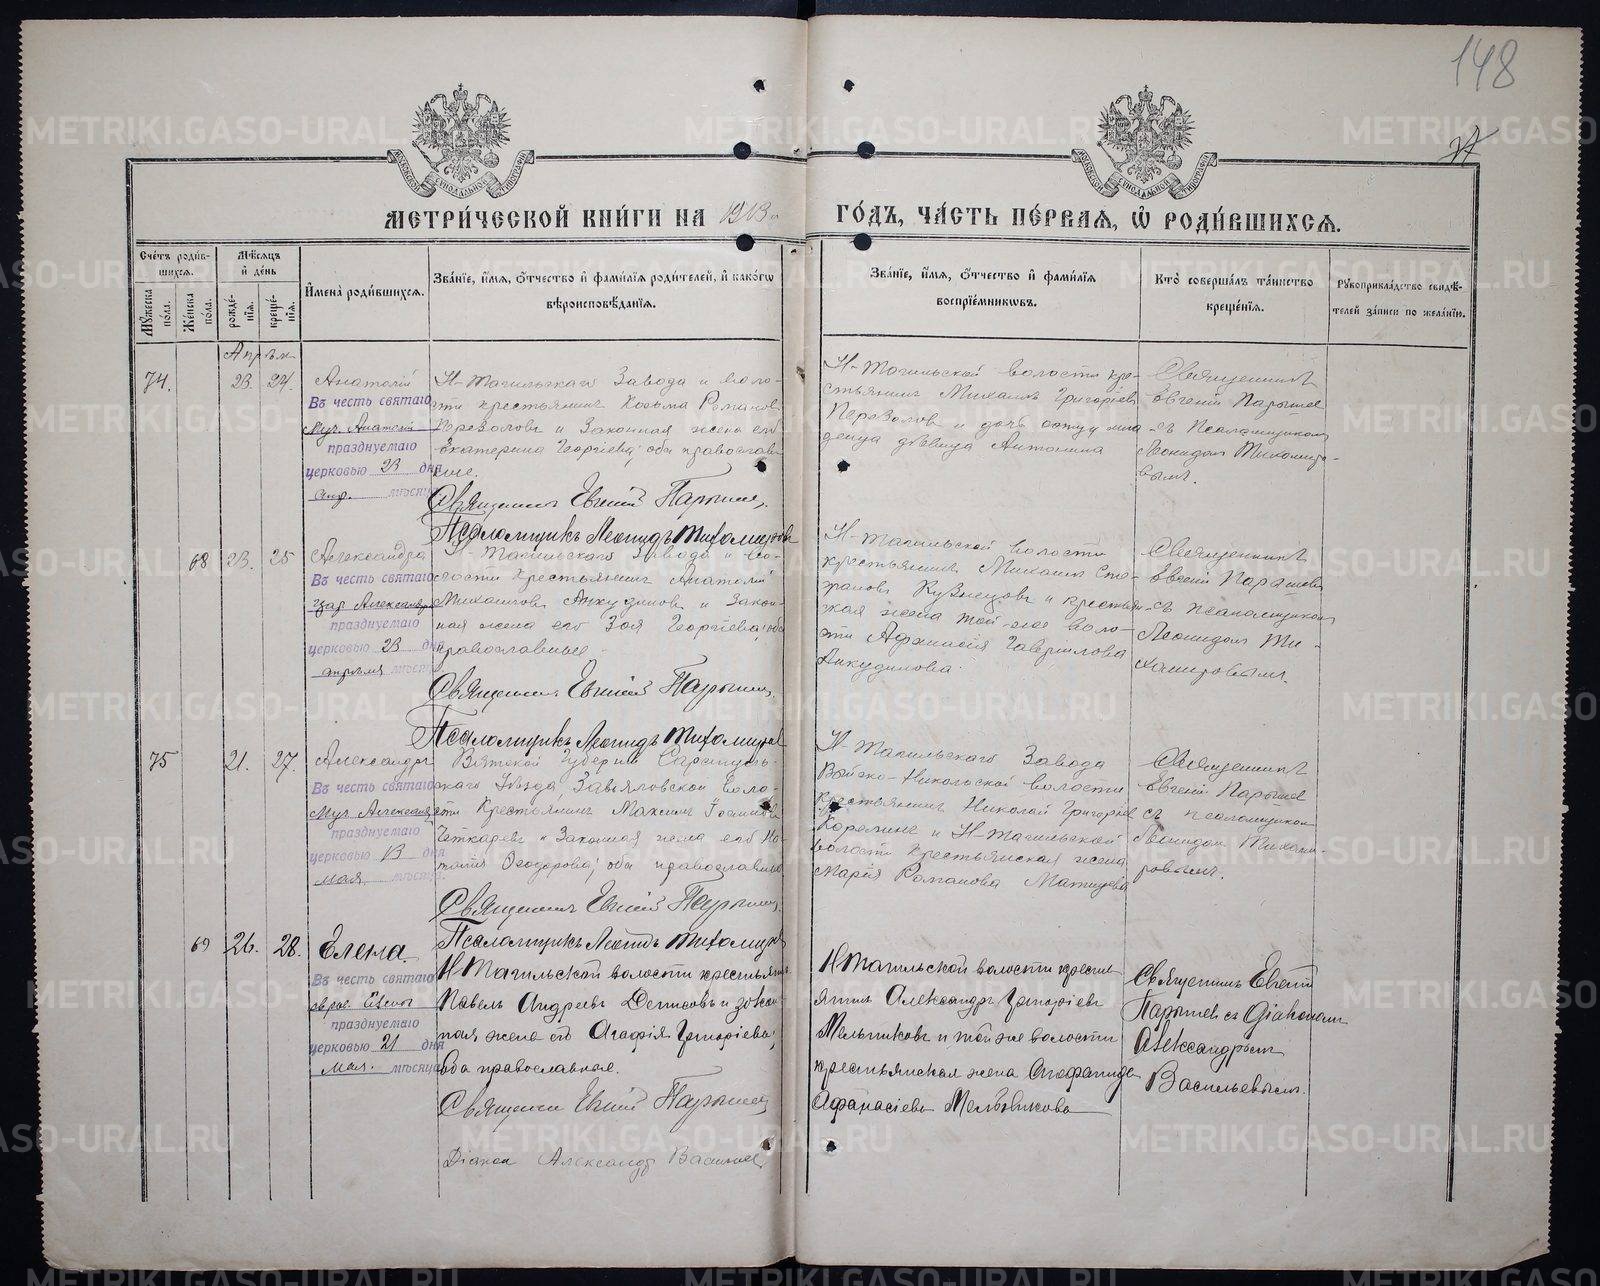 148
МЕТРИ́ЧЕСКОЙ КНИ́ГИ НА 1913 г.
ГО́ДЪ, ЧА́СТЬ ПЕ́РВАЯ, Ѽ РОДИ́ВШИХСЯ.
Сче́тъ роди́вшихся.
Му́жеска по́ла.
Же́нска по́ла.
Мѣ́сяцъ и҆ де́нь
рожде́нїя.
креще́нїя.
И҆мена̀ роди́вшихся.
Зва́нїе, и҆́мя, ѻ҆́тчество и҆ фами́лїя роди́телей, и҆ како́гѡ
вѣроисповѣ́данїя.
Зва́нїе, и҆́мя, ѻ҆́тчество и҆ фами́лїя
воспрїе́мникѡвъ.
Кто̀ соверша́лъ та́инство
креще́нїя.
Рꙋкоприкла́дство свидѣ́-
телей за́писи по жела́нїю.
Апрѣль
74.
23. 24.
Анатолій
Въ честь святаго
муч. Анатолія
празднуемаго
церковью 23 дня
апр. мѣсяца
Н-Тагильскаго Завода и воло-
сти крестьянинъ Козьма Романовъ
Перезоловъ и Законная жена его
Екатерина Георгіева; оба православ-
ные.
Священникъ Евгеній Парышев
Псаломщикъ Леонидъ Тихомировъ
Н-Тагильской волости кре-
стьянинъ Михаилъ Григоріев
Перезолов и дочь отца
девица Антонина
Священникъ
Евгеній Парышев
съ Псаломщикомъ
Леонидом Тихомиро-
вымъ.
68
23. 25
Александра
Въ честь святаго
цар. Александры
празднуемаго
церковью 23 дня
апрѣля мѣсяца
Н-Тагильскаго Завода и во-
лости крестьянинъ Анатолій
Михаиловъ Анкудинов и Закон-
ная жена его Зоя Георгіева; оба
православные.
Священникъ Евгеній Парышев
Псаломщикъ Леонидъ Тихомиров
Н-Тагильской волости
крестьянинъ Михаилъ
Кузнецовъ и крестьян-
ская жена той-же воло-
сти Афанасія Гаврилова
Анкудинова.
Священникъ
Евгеній Парышев
съ псаломщиком
Леонидом Ти-
хомировымъ.
75
21. 27.
Александръ
Въ честь святаго
муч. Александра
празднуемаго
церковью 13 дня
мая мѣсяца
Вятской Губерніи Сарапуль-
скаго Уѣзда, Завьяловской воло-
сти Крестьянинъ Максимъ Іоаннов
Четкаревъ и Законная жена его На-
талія Ѳеодорова; оба православные
Священникъ Евгеній Парышев
Псаломщикъ Леонидъ Тихомиров
Н-Тагильскаго Завода
Выйско-Никольской волости
Крестьянинъ Николай Григорьев
и Н-Тагильской
волости крестьянская жена
Марія Романова
Священникъ
Евгеній Парышев
съ псаломщиком
Леонидом Тихоми-
ровымъ.
69
26. 28.
Елена.
Въ честь святаго
Елены
празднуемаго
церковью 21 дня
мая. мѣсяца
Н Тагильской волости крестьянинъ
Павелъ Андреевъ Денисовъ и закон-
ная жена его Агафія Григоріева;
оба православные.
Священникъ Евгеній Парышев
Діакон Александр Васильев
Н Тагильской волости кресть-
янинъ Александръ Григоріевъ
Мельниковъ и той же волости
крестьянская жена
Афанасіева Мельникова
Священникъ Евгеній
Парышевъ съ Діакономъ
Александромъ
Васильевымъ.
METRIKI.GASO-URAL.RU